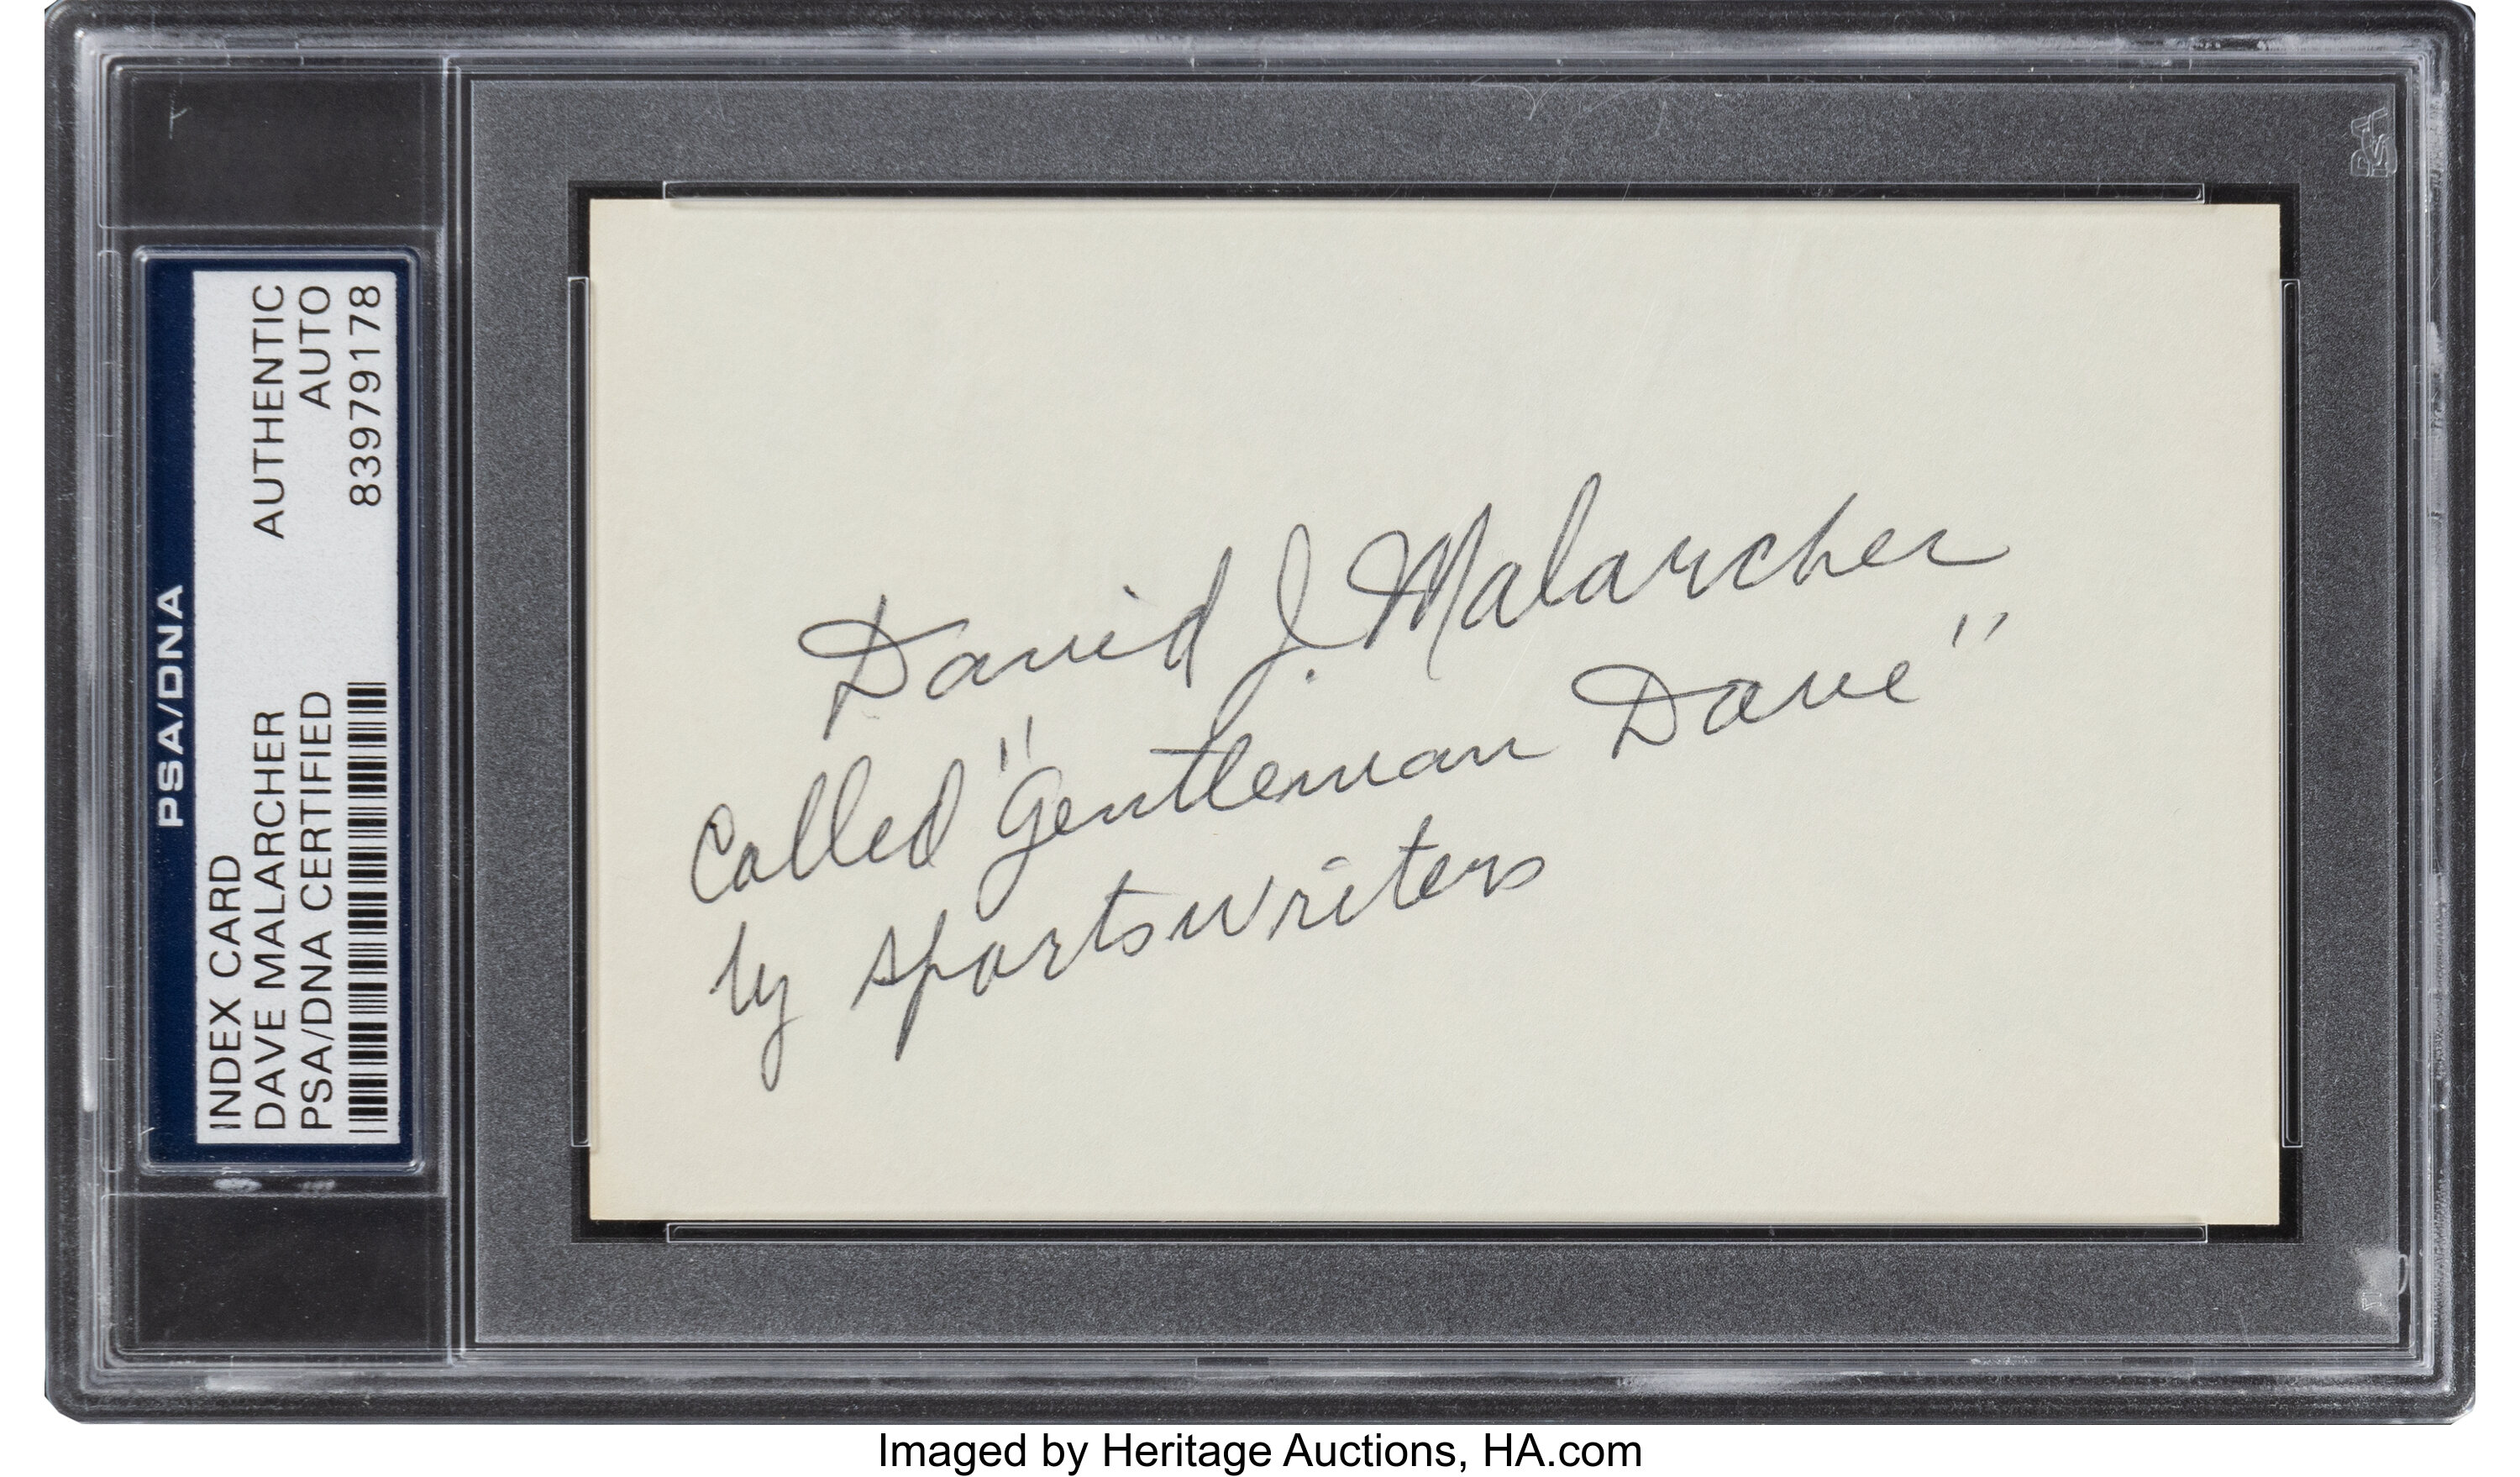 PSA/DNA
INDEX CARD AUTHENTIC
DAVE MALARCHER AUTO
PSA/DNA CERTIFIED 83979178
David J. Malarcher
Called "Gentleman Dave"
by sportswriters
PSA
Imaged by Heritage Auctions, HA.com